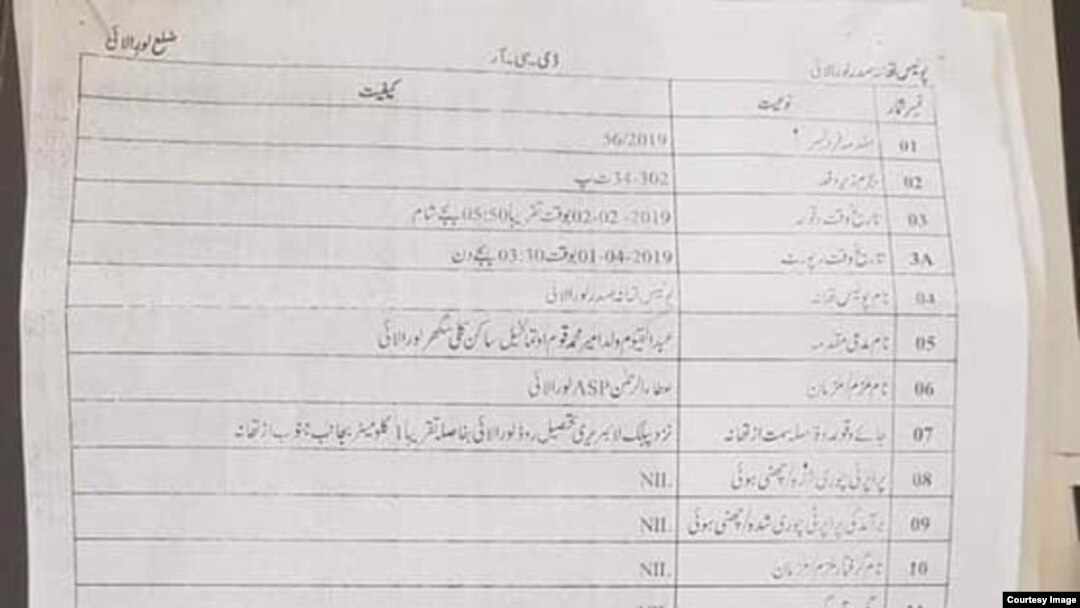 ضلع لورالائی
ڈی۔سی۔آر
پولیس تھانہ صدر لورالائی
نمبر شمار نوعیت کیفیت
01 مقدمہ فرد نمبر 56/2019
02 جرم زیر دفعہ 34-302 ت پ
03 تاریخ وقت وقوعہ 02-02-2019 بوقت تقریباً 05:50 بجے شام
3A تاریخ وقت رپورٹ 01-04-2019 بوقت 03:30 بجے دن
04 نام پولیس تھانہ پولیس تھانہ صدر لورالائی
05 نام مدعی مقدمہ عبدالقیوم ولد امیر محمد قوم اوتمانخیل ساکن کلی سگھر لورالائی
06 نام ملزم/ملزمان عطاءالرحمٰن ASP لورالائی
07 جائے وقوعہ و فاصلہ سمت از تھانہ نزد پبلک لائبریری تحصیل روڈ لورالائی بفاصلہ تقریباً 1 کلومیٹر بجانب جنوب از تھانہ
08 پراپرٹی چوری شدہ/چھنی ہوئی NIL
09 برآمدگی پراپرٹی چوری شدہ/چھنی ہوئی NIL
10 نام گرفتار ملزم/ملزمان NIL
Courtesy Image